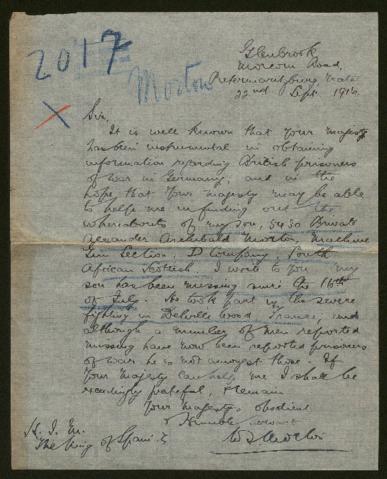 2017
Morton
Glenbrook
Morcom Road,
Pietermaritzburg Natal
22nd Sept. 1916.
Sir,
It is well known that Your majesty
has been instrumental in obtaining
information regarding British prisoners
of war in Germany, and in the
hope that Your majesty may be able
to help me in finding out the
whereabouts of my son, 5430 Private
Alexander Archibald Morton, Machine
Gun Section, D Company, South
African Scottish I wrote to You my
son has been missing since the 16th
of July. He took part in the severe
fighting in Delville Wood France, and
although a number of men reported
missing have now been reported prisoners
of war he is not amongst those. If
Your Majesty can help me I shall be
exceedingly grateful, I remain
Your Majestys obedient
& Humble servant
H. I. M.
The King of Spain